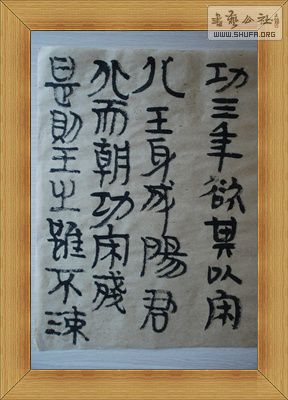 書藝公社
WWW.SHUFA.ORG
功三年欲其以
王身成陽君
而朝功
是則王之雖不